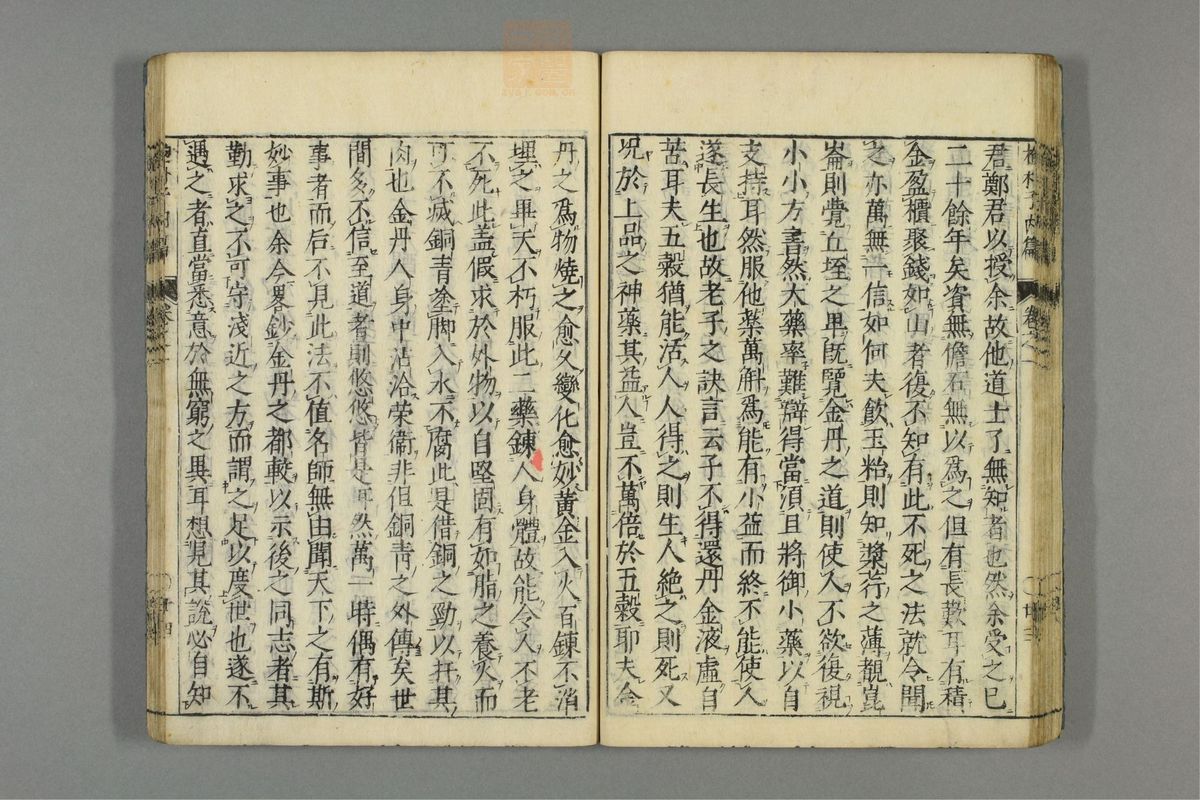 抱朴子内篇 卷之一
君鄭君以授余故他道士了無知者也然余受之已
二十餘年矣資無儋石無以爲之但有長歎耳有積
金盈櫃聚錢如山者復不知有此不死之法就令聞
之亦萬無一信如何夫飲玉粭則知漿荇之薄覩崑
崙則覺丘垤之卑既覽金丹之道則使人不欲復視
小小方書然大藥率難辯得當須且將御小藥以自
支持耳然服他藥萬斛爲能有小益而終不能使人
遂長生也故老子之訣言云子不得還丹金液虛自
苦耳夫五穀猶能活人人得之則生人絶之則死又
况於上品之神藥其益人豈不萬倍於五穀耶夫金
丹之爲物燒之愈久變化愈妙黄金入火百錬不消
埋之畢天不朽服此二藥錬人身體故能令人不老
不死此盖假求於外物以自堅固有如脂之養火而
可不滅銅青塗脚入水不腐此是借銅之勁以扞其
肉也金丹人身中沾洽荣衞非但銅青之外傳矣世
間多不信至道者則悠悠皆是耳然萬一時偶有好
事者而后不見此法不值名師無由聞天下之有斯
妙事也余今畧鈔金丹之都較以示後之同志者其
勤求之不可守淺近之方而謂之足以度世也遂不
遇之者直當悉意於無窮之異耳想見其説必自知